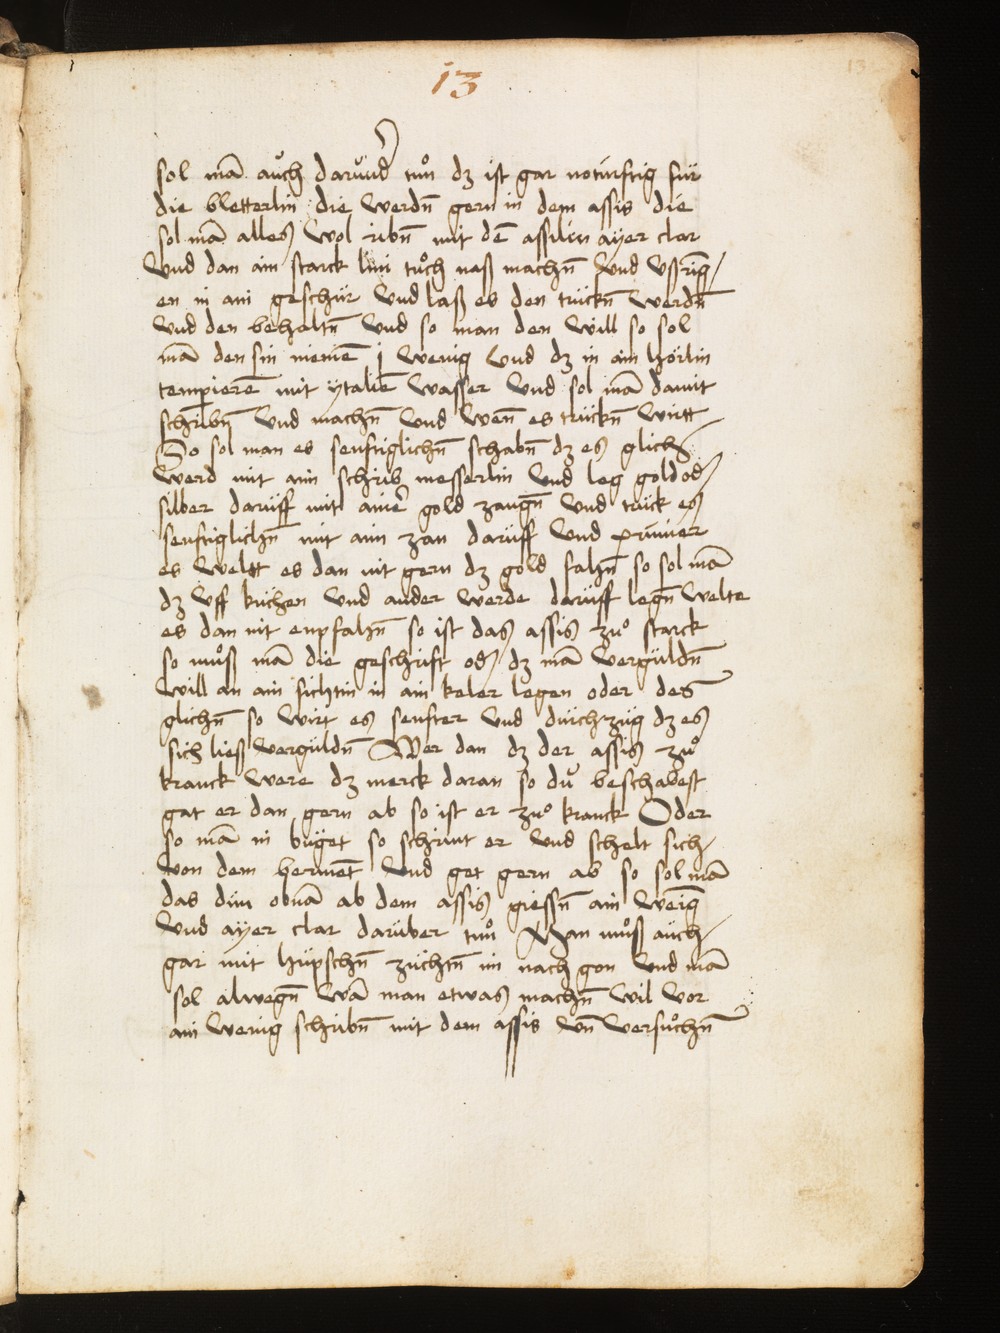 13
13
sol mā aǔch darǔnd͛ tuͦn dz ist gar notǔrftig fǔr
die bletterlin die werdn̄ gern in dem assis die
sol mā alles wol ribn̄ mit dē assisin ayer clar
Vnd dan ain starck lini tuͦch naß machn̄ Vnd Vßring
en in ain geschir Vnd laß es den trǔckn̄ werdn̄
Vnd den behaltn̄ Vnd so man den will so sol
mā den sin niemē j wenig Vnd dz in ain hörlin
tempierēn mit ytaliē wasser Vnd sol mā damit
schribn̄ Vnd machn̄ Vnd wen̄ es trǔckn̄ wirtt
So sol man es senftiglichn̄ schabn̄ dz es glich
werd mit ain schrib messerlin Vnd leg gold od͛
silber darǔff mit ain͛ gold zangn̄ Vnd trǔck es
senftiglichn̄ mit aim zan darǔff Vnd prǔnier
es weltt es dan nit gern dz gold fahn̄ so sol mā
dz Vff kǔchen Vnd ander werde darǔff legn̄ welte
es dan nit enpfahn̄ so ist das assis zuͦ starck
so muͦß mā die geschrift od͛ dz mā vergǔldn̄
will an ain fichtin in ain keler legen oder des
glichn̄ so wirt es senfter Vnd dǔrchzǔg dz es
sich ließ vergǔldn̄ Wer dan dz der assis zuͦ
kranck were dz merck daran so dǔ beschabest
gat er dan gern ab so ist er zuͦ kranck Oder
so mā in bǔget so schrint er Vnd schelt sich
von dem bermēt Vnd get gern ab so sol mā
das dǔn obnā ab dem assis giessn̄ ain wenig
Vnd ayer clar darǔber tuͦn Man muͦß aǔch
gar mit hǔpschn̄ zǔchtn̄ im nach gon Vnd mā
sol alwegn̄ wā man etwas machn̄ wil vor
ain wenig schribn̄ mit dem assis vn̄ versuͦchn̄